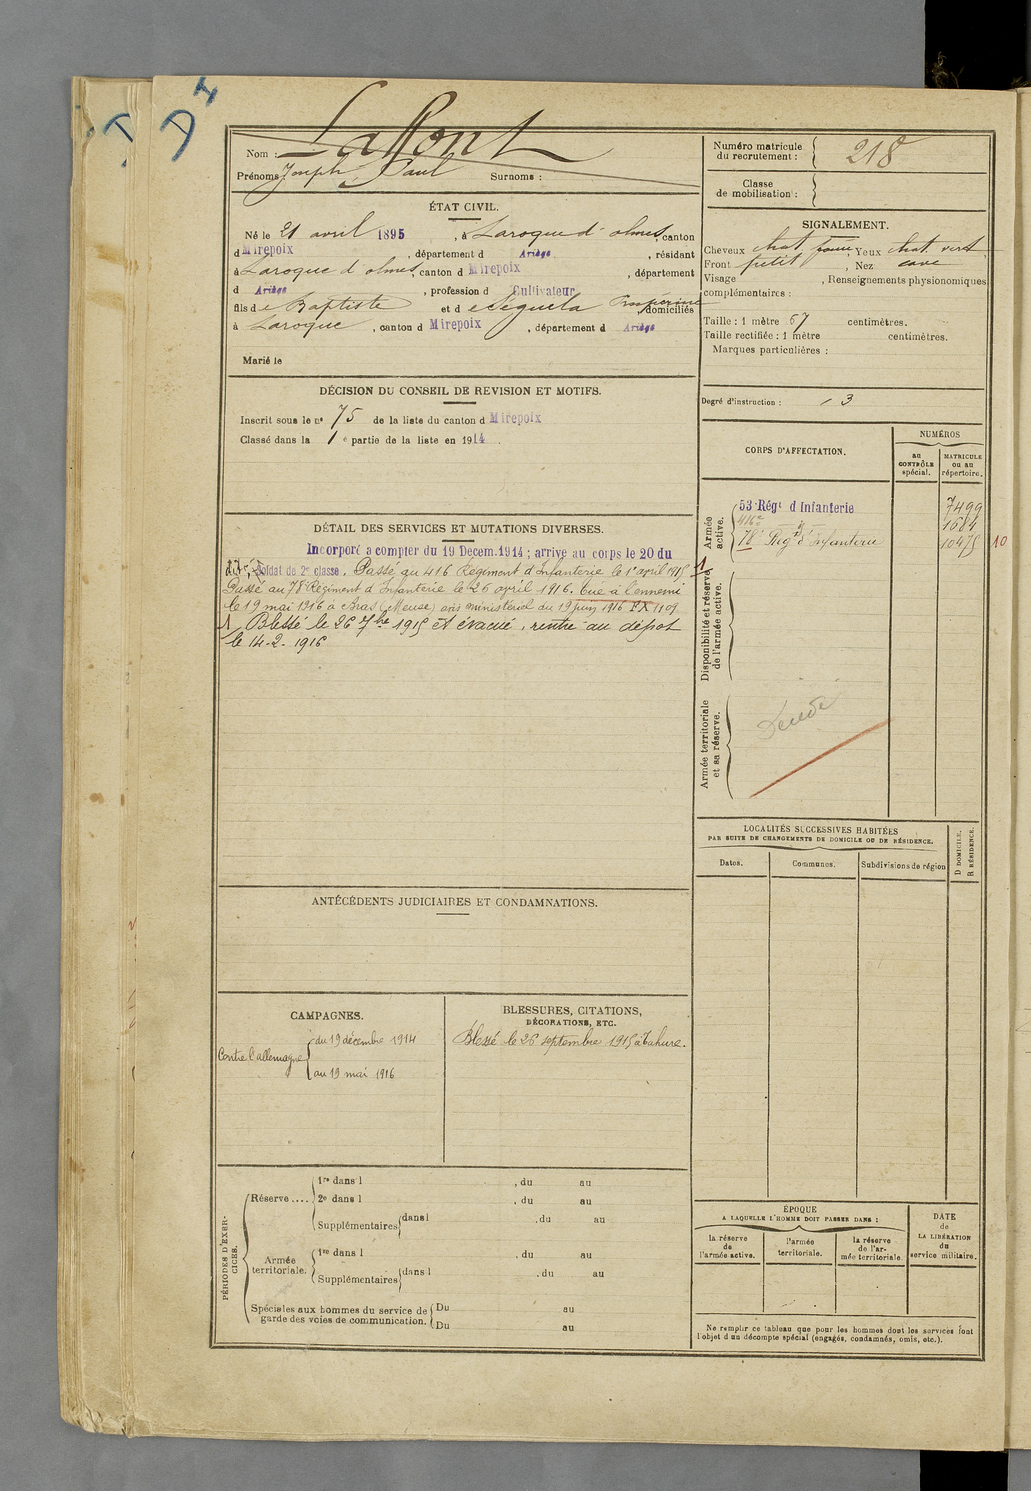 D4
Nom : Laffont
Prénoms Joseph Paul Surnoms :
Numéro matricule du recrutement : 218
Classe de mobilisation :
ÉTAT CIVIL.
Né le 21 avril 1895, à Laroque d'olmes, canton
d Mirepoix, département d Ariège, résidant
à Laroque d'olmes, canton d Mirepoix, département
d Ariège, profession d Cultivateur
fils de Baptiste et de Séguéla domiciliés
à Laroque, canton d Mirepoix, département d Ariège
Marié le
SIGNALEMENT.
Cheveux chat foncé, Yeux chat vert
Front petit, Nez cave
Visage , Renseignements physionomiques
complémentaires :
Taille : 1 mètre 67 centimètres.
Taille rectifiée : 1 mètre centimètres.
Marques particulières :
Degré d'instruction : 3
DÉCISION DU CONSEIL DE REVISION ET MOTIFS.
Inscrit sous le nº 75 de la liste du canton d Mirepoix
Classé dans la 1e partie de la liste en 1914.
DÉTAIL DES SERVICES ET MUTATIONS DIVERSES.
Incorporé a compter du 19 Decem. 1914 ; arrivé au corps le 20 du
dit, Soldat de 2e classe. Passé au 416 Régiment d'Infanterie le 1er avril 1915
Passé au 78e Régiment d'Infanterie le 25 avril 1916. Tué à l'ennemi
le 19 mai 1916 à Bras (Meuse) avis ministériel du 19 juin 1916 FX 1109
1 Blessé le 26 7bre 1915 et évacué, rentré au dépôt
le 14-2-1916
CORPS D'AFFECTATION.
NUMÉROS
au CONTRÔLE spécial.
MATRICULE ou au répertoire.
Armée active.
53e Régt d'Infanterie 7499
416e 1684
78e Regt d'Infanterie 10475
10
Disponibilité et réserve de l'armée active.
Armée territoriale et sa réserve.
LOCALITÉS SUCCESSIVES HABITÉES
PAR SUITE DE CHANGEMENTS DE DOMICILE OU DE RÉSIDENCE.
Dates.
Communes.
Subdivisions de région
D DOMICILE.
R RÉSIDENCE.
ANTÉCÉDENTS JUDICIAIRES ET CONDAMNATIONS.
CAMPAGNES.
Contre l'allemagne
du 19 décembre 1914
au 19 mai 1916
BLESSURES, CITATIONS,
DÉCORATIONS, ETC.
Blessé le 26 septembre 1915 à Tahure.
PÉRIODES D'EXERCICES.
Réserve ....
1re dans l , du au
2e dans l , du au
Supplémentaires dans l , du au
Armée territoriale.
1re dans l , du au
Supplémentaires dans l , du au
Spéciales aux hommes du service de garde des voies de communication.
Du au
Du au
ÉPOQUE
A LAQUELLE L'HOMME DOIT PASSER DANS :
la réserve de l'armée active.
l'armée territoriale.
la réserve de l'armée territoriale.
DATE de LA LIBÉRATION du service militaire.
Ne remplir ce tableau que pour les hommes dont les services font
l'objet d'un décompte spécial (engagés, condamnés, omis, etc.).